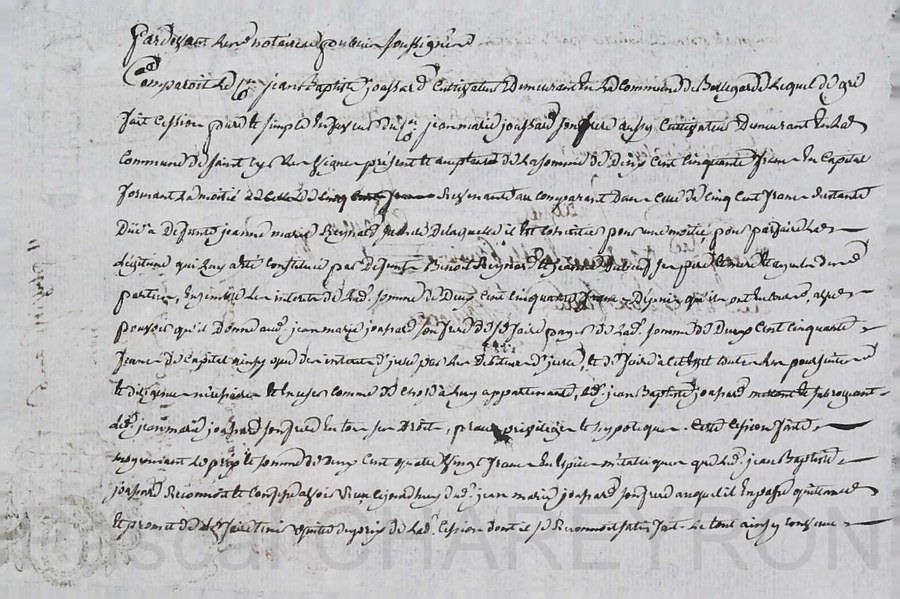 Pardevant les notaires publics soussignés
Comparoit le Cen jean Baptiste joassard Cultivateur Demeurant En La Commune de Bellegarde Lequel de gré
fait Cession pure et simple En faveur du Cen jean marie joassard son frere aussy Cultivateur Demeurant En La
Commune De saint present et acceptant De La somme de Deux Cent Cinquante franc En Capital
formant La moitié De Celle De Cinq Cent franc Revenant au Comparant Dans Celle de Cinq Cent franc Restante
Düe a Defunte jeanne marie Reynard De laquelle il Est heritier pour une moitié pour parfaire La
légitime qui Luy a été Constituée par Defunts Benoit Reynard et jeanne Dubeuf ses pere et mere
partie, Ensemble Les interets de Lad. somme de Deux Cent Cinquante franc Depuis qu'ils ont Eu cours, avec
pouvoir qu'il Donne aud. jean marie joassard son frere De se faire payer De Lad. somme de Deux Cent Cinquante
franc De Capital ainsy que des interets par Les Debiteurs D'jcelle, Et De faire a Cet Effet toutes Les poursuites
et diligences necessaires Et En user Comme De Chose a Luy appartenante, Led. jean Baptiste joassard mettant et subrogeant
led. jean marie joassard son frere En tous ses Droits, privileges et hypoteques. Cette Cession faite
moyennant Le prix et somme de Deux Cent quatre vingt franc En Espece metalique que Led. jean Baptiste
joassard Reconnoit et Confesse avoir Reçu Cejourdhuy dud. jean marie joassard son frere auquel il En passe quittance
Et promet De Le faire tenir quitte Du prix De Lad. Cession dont il se Reconnoit satisfait. Le tout ainsy Convenu
Pascal CHAREYRON